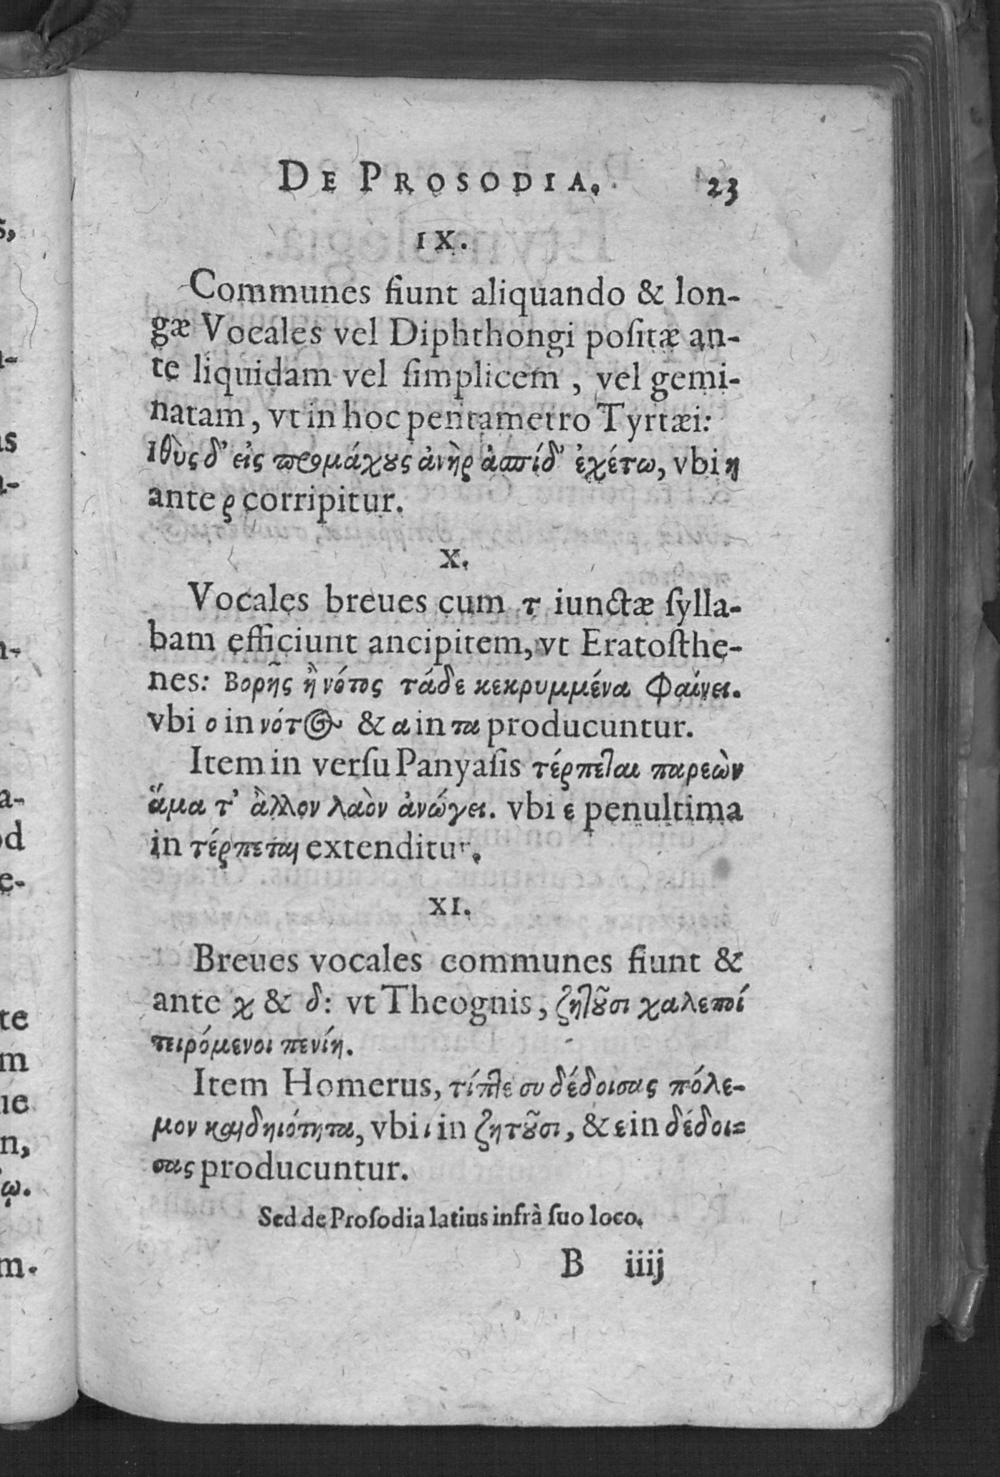 DE PROSODIA. 23
IX.
Communes fiunt aliquando & lon-
gæ Vocales vel Diphthongi poſitæ an-
te liquidam vel ſimplicem, vel gemi-
natam, vt in hoc pentametro Tyrtæi:
Ιθὺς δ' εἰς προμάχους ἀνὴρ ἀσπίδ' ἐχέτω, vbi η
ante ρ corripitur.
X.
Vocales breues cum τ iunctæ ſylla-
bam efficiunt ancipitem, vt Eratoſthe-
nes: Βορῆς ἢ νότος τάδε κεκρυμμένα φαίνει.
vbi ο in νότος & α in τα producuntur.
Item in verſu Panyaſis τέρπεται παρεὼν
ἅμα τ' ἄλλον λαὸν ἀνώγει. vbi ε penultima
in τέρπεται extenditur.
XI.
Breues vocales communes fiunt &
ante χ & δ: vt Theognis, ζητοῦσι χαλεποί
πειρόμενοι πενίη.
Item Homerus, τίπτε συ δέδοισας πόλε-
μον καὶ δηιότητα, vbi ι in ζητοῦσι, & ε in δέδοι-
σας producuntur.
Sed de Proſodia latius infrà ſuo loco.
B iiij